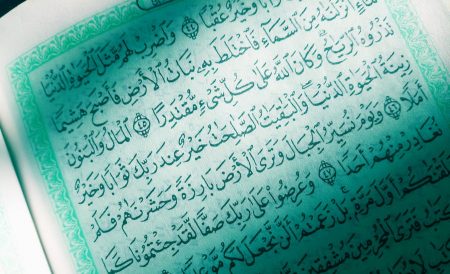 وَخَيْرٌ عُقْبًا ٤٤ وَٱضْرِبْ لَهُم مَّثَلَ ٱلْحَيَوٰةِ ٱلدُّنْيَا
أَنزَلْنَٰهُ مِنَ ٱلسَّمَآءِ فَٱخْتَلَطَ بِهِۦ نَبَاتُ ٱلْأَرْضِ فَأَصْبَحَ هَشِيمًا
تَذْرُوهُ ٱلرِّيَٰحُ وَكَانَ ٱللَّهُ عَلَىٰ كُلِّ شَىْءٍ مُّقْتَدِرًا ٤٥ ٱلْمَالُ وَٱلْبَنُونَ
زِينَةُ ٱلْحَيَوٰةِ ٱلدُّنْيَا وَٱلْبَٰقِيَٰتُ ٱلصَّٰلِحَٰتُ خَيْرٌ عِندَ رَبِّكَ ثَوَابًا وَخَيْرٌ
أَمَلًا ٤٦ وَيَوْمَ نُسَيِّرُ ٱلْجِبَالَ وَتَرَى ٱلْأَرْضَ بَارِزَةً وَحَشَرْنَٰهُمْ فَلَمْ
نُغَادِرْ مِنْهُمْ أَحَدًا ٤٧ وَعُرِضُوا۟ عَلَىٰ رَبِّكَ صَفًّا لَّقَدْ جِئْتُمُونَا كَمَا
خَلَقْنَٰكُمْ أَوَّلَ مَرَّةٍۭ بَلْ زَعَمْتُمْ أَلَّن نَّجْعَلَ لَكُم
فَتَرَى ٱلْمُجْرِمِينَ مُشْفِقِينَ